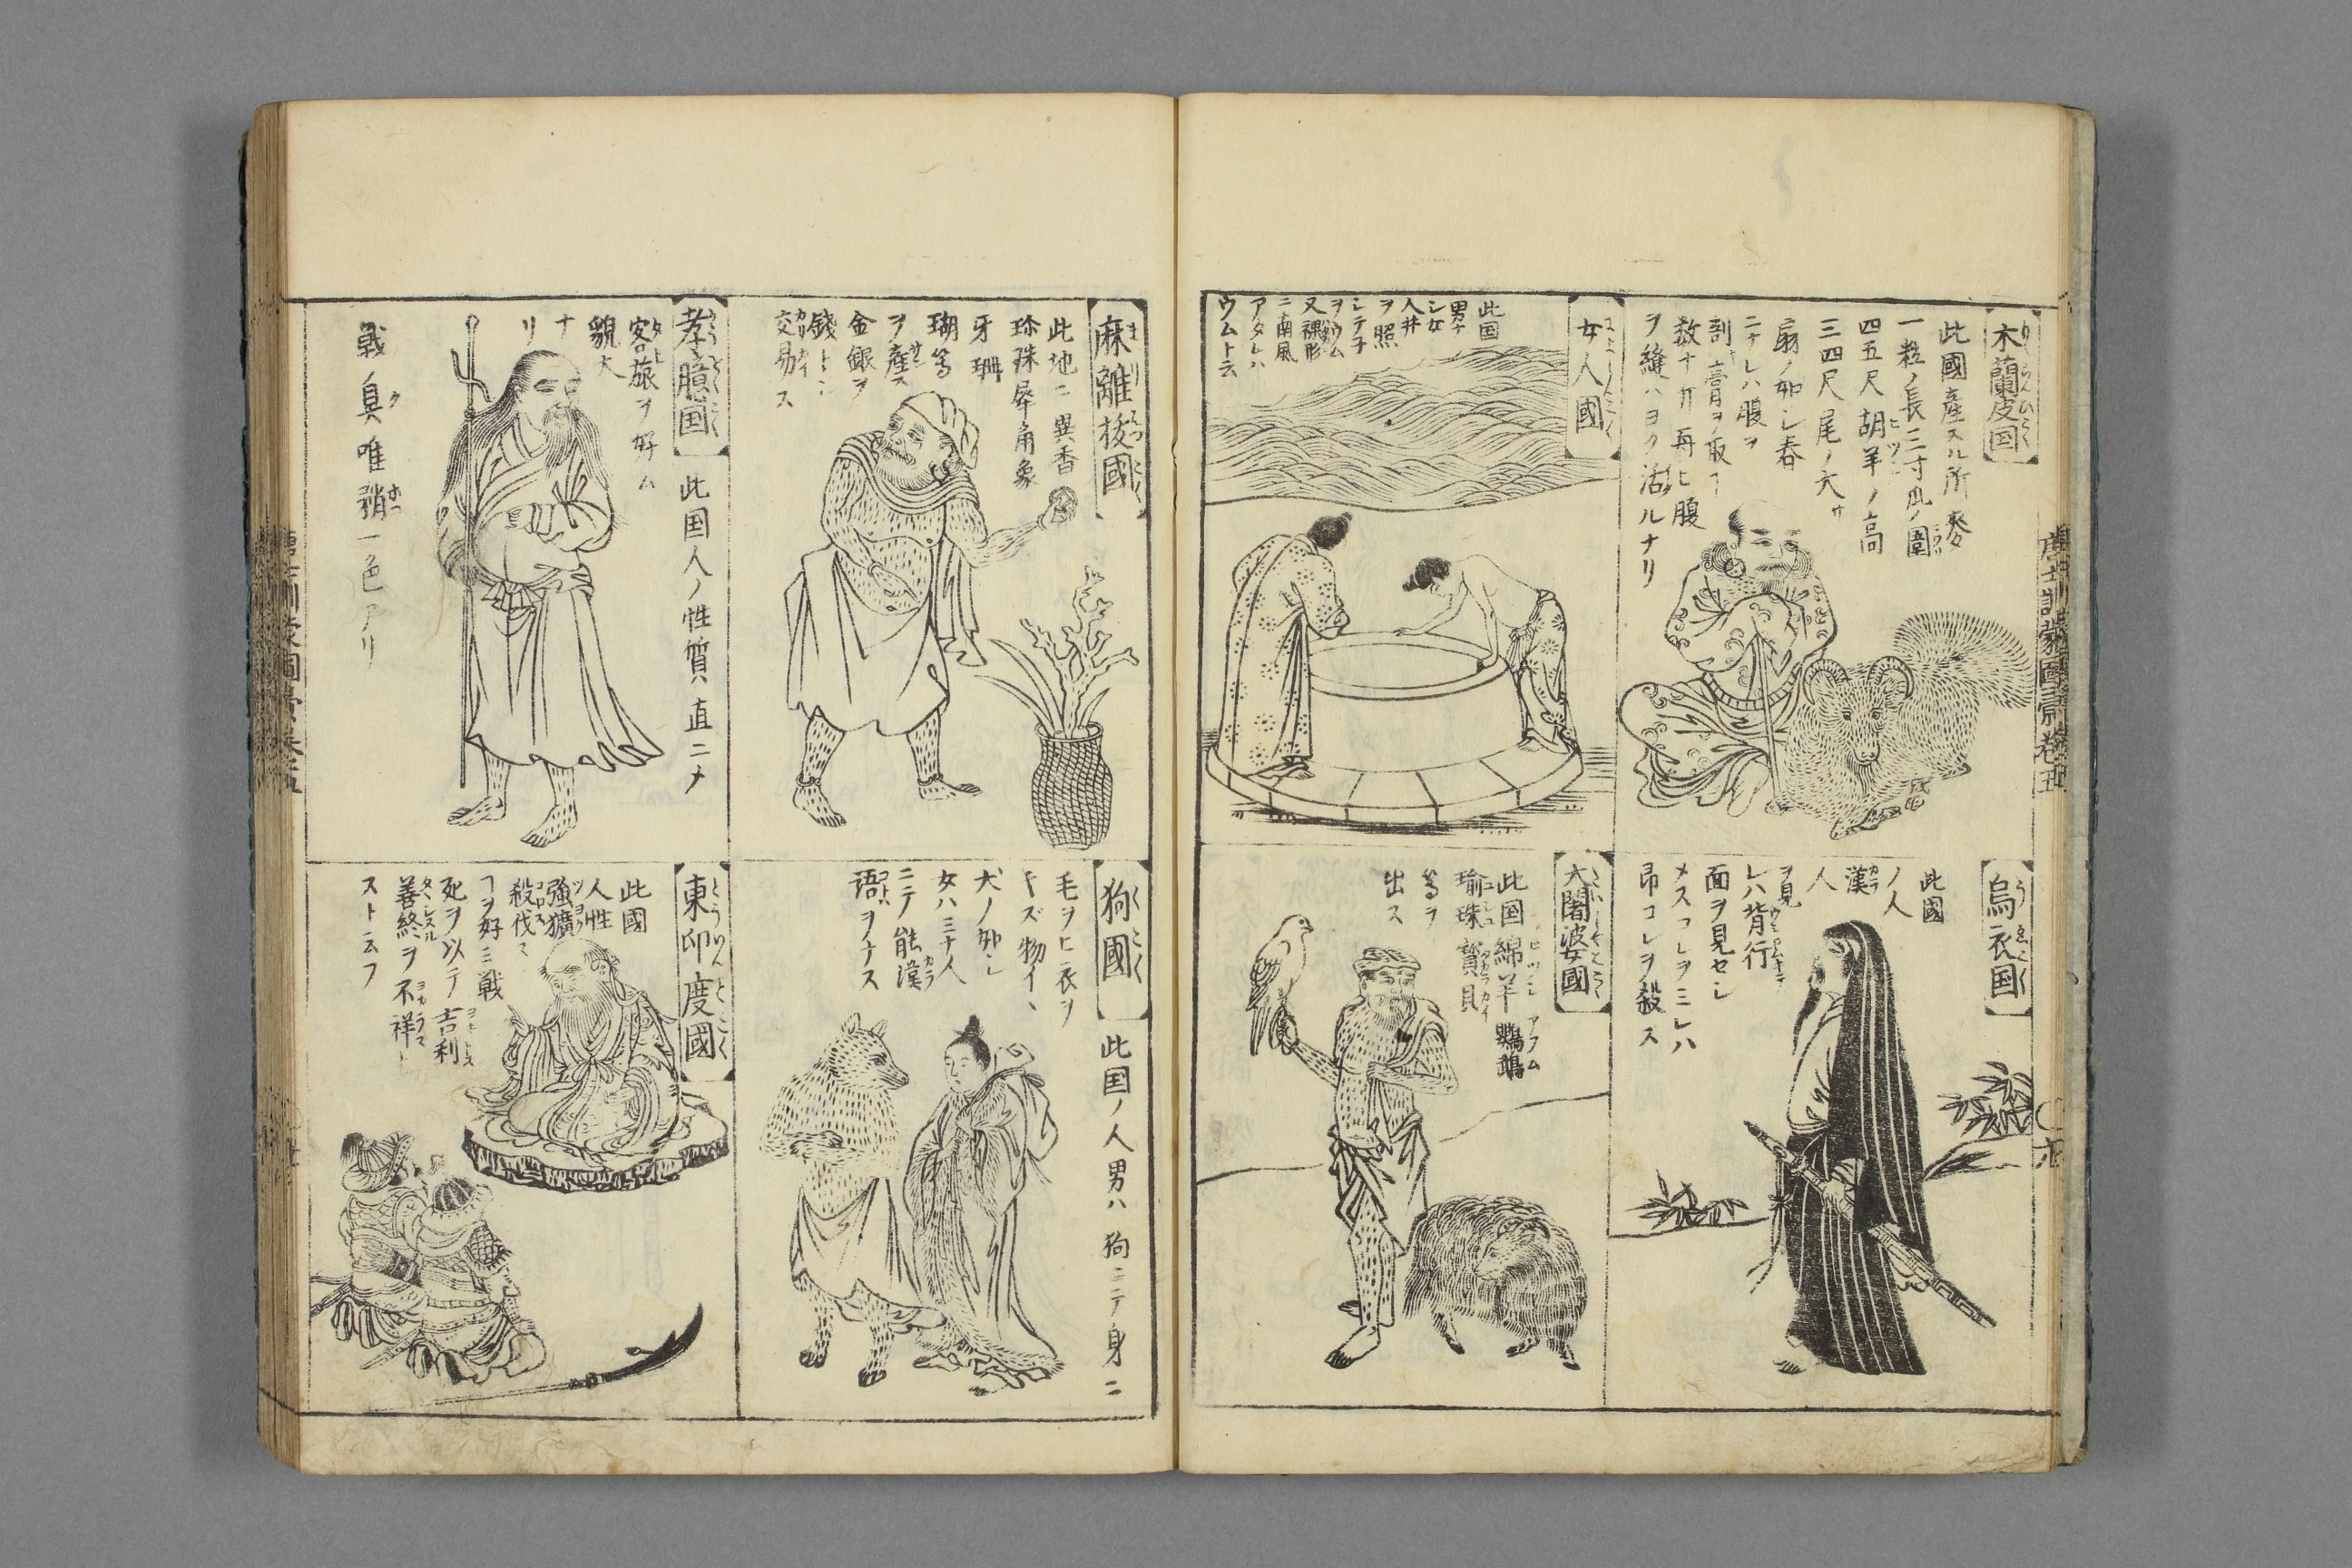 木蘭皮国
此國産スル所ノ麥
一粒ノ長三寸瓜ノ圍
四五尺胡羊ノ高
三四尺尾ノ大サ
扇ノ如シ春
ニナレハ腹ヲ
割膏ヲ取丁
数十斤再ヒ腹
ヲ縫ハヨク活ルナリ
女人國
此国
男ナ
シ女
人井
ヲ照
シテ子
ヲウム
又裸形
ニ南風
アタレハ
ウムト云
烏衣国
此國
ノ人
漢
人
ヲ見
レハ背行
面ヲ見セシ
メスコレヲミレハ
昂コレヲ殺ス
大闍婆國
此国綿羊鸚鵡
瑜珠寳貝
等ヲ
出ス
麻離抜國
此地ニ異香
珎珠犀角象
牙珊
瑚等
ヲ産ス
金銀ヲ
錢トシ
交易ス
孝臆国
此国人ノ性質直ニメ
客旅ヲ好ム
貌大
ナ
リ
戦ノ具唯矟一色アリ
狗國
此国ノ人男ハ狗ニテ身ニ
毛ヲヒ衣ヲ
キズ物イヽ
犬ノ如シ
女ハミナ人
ニテ能漢
語ヲナス
東印度國
此國
人性
強獷
殺伐
ヿヲ好ミ戦
死ヲ以テ吉利
善終ヲ不祥ト
スト云フ
唐土訓蒙圖彙卷五